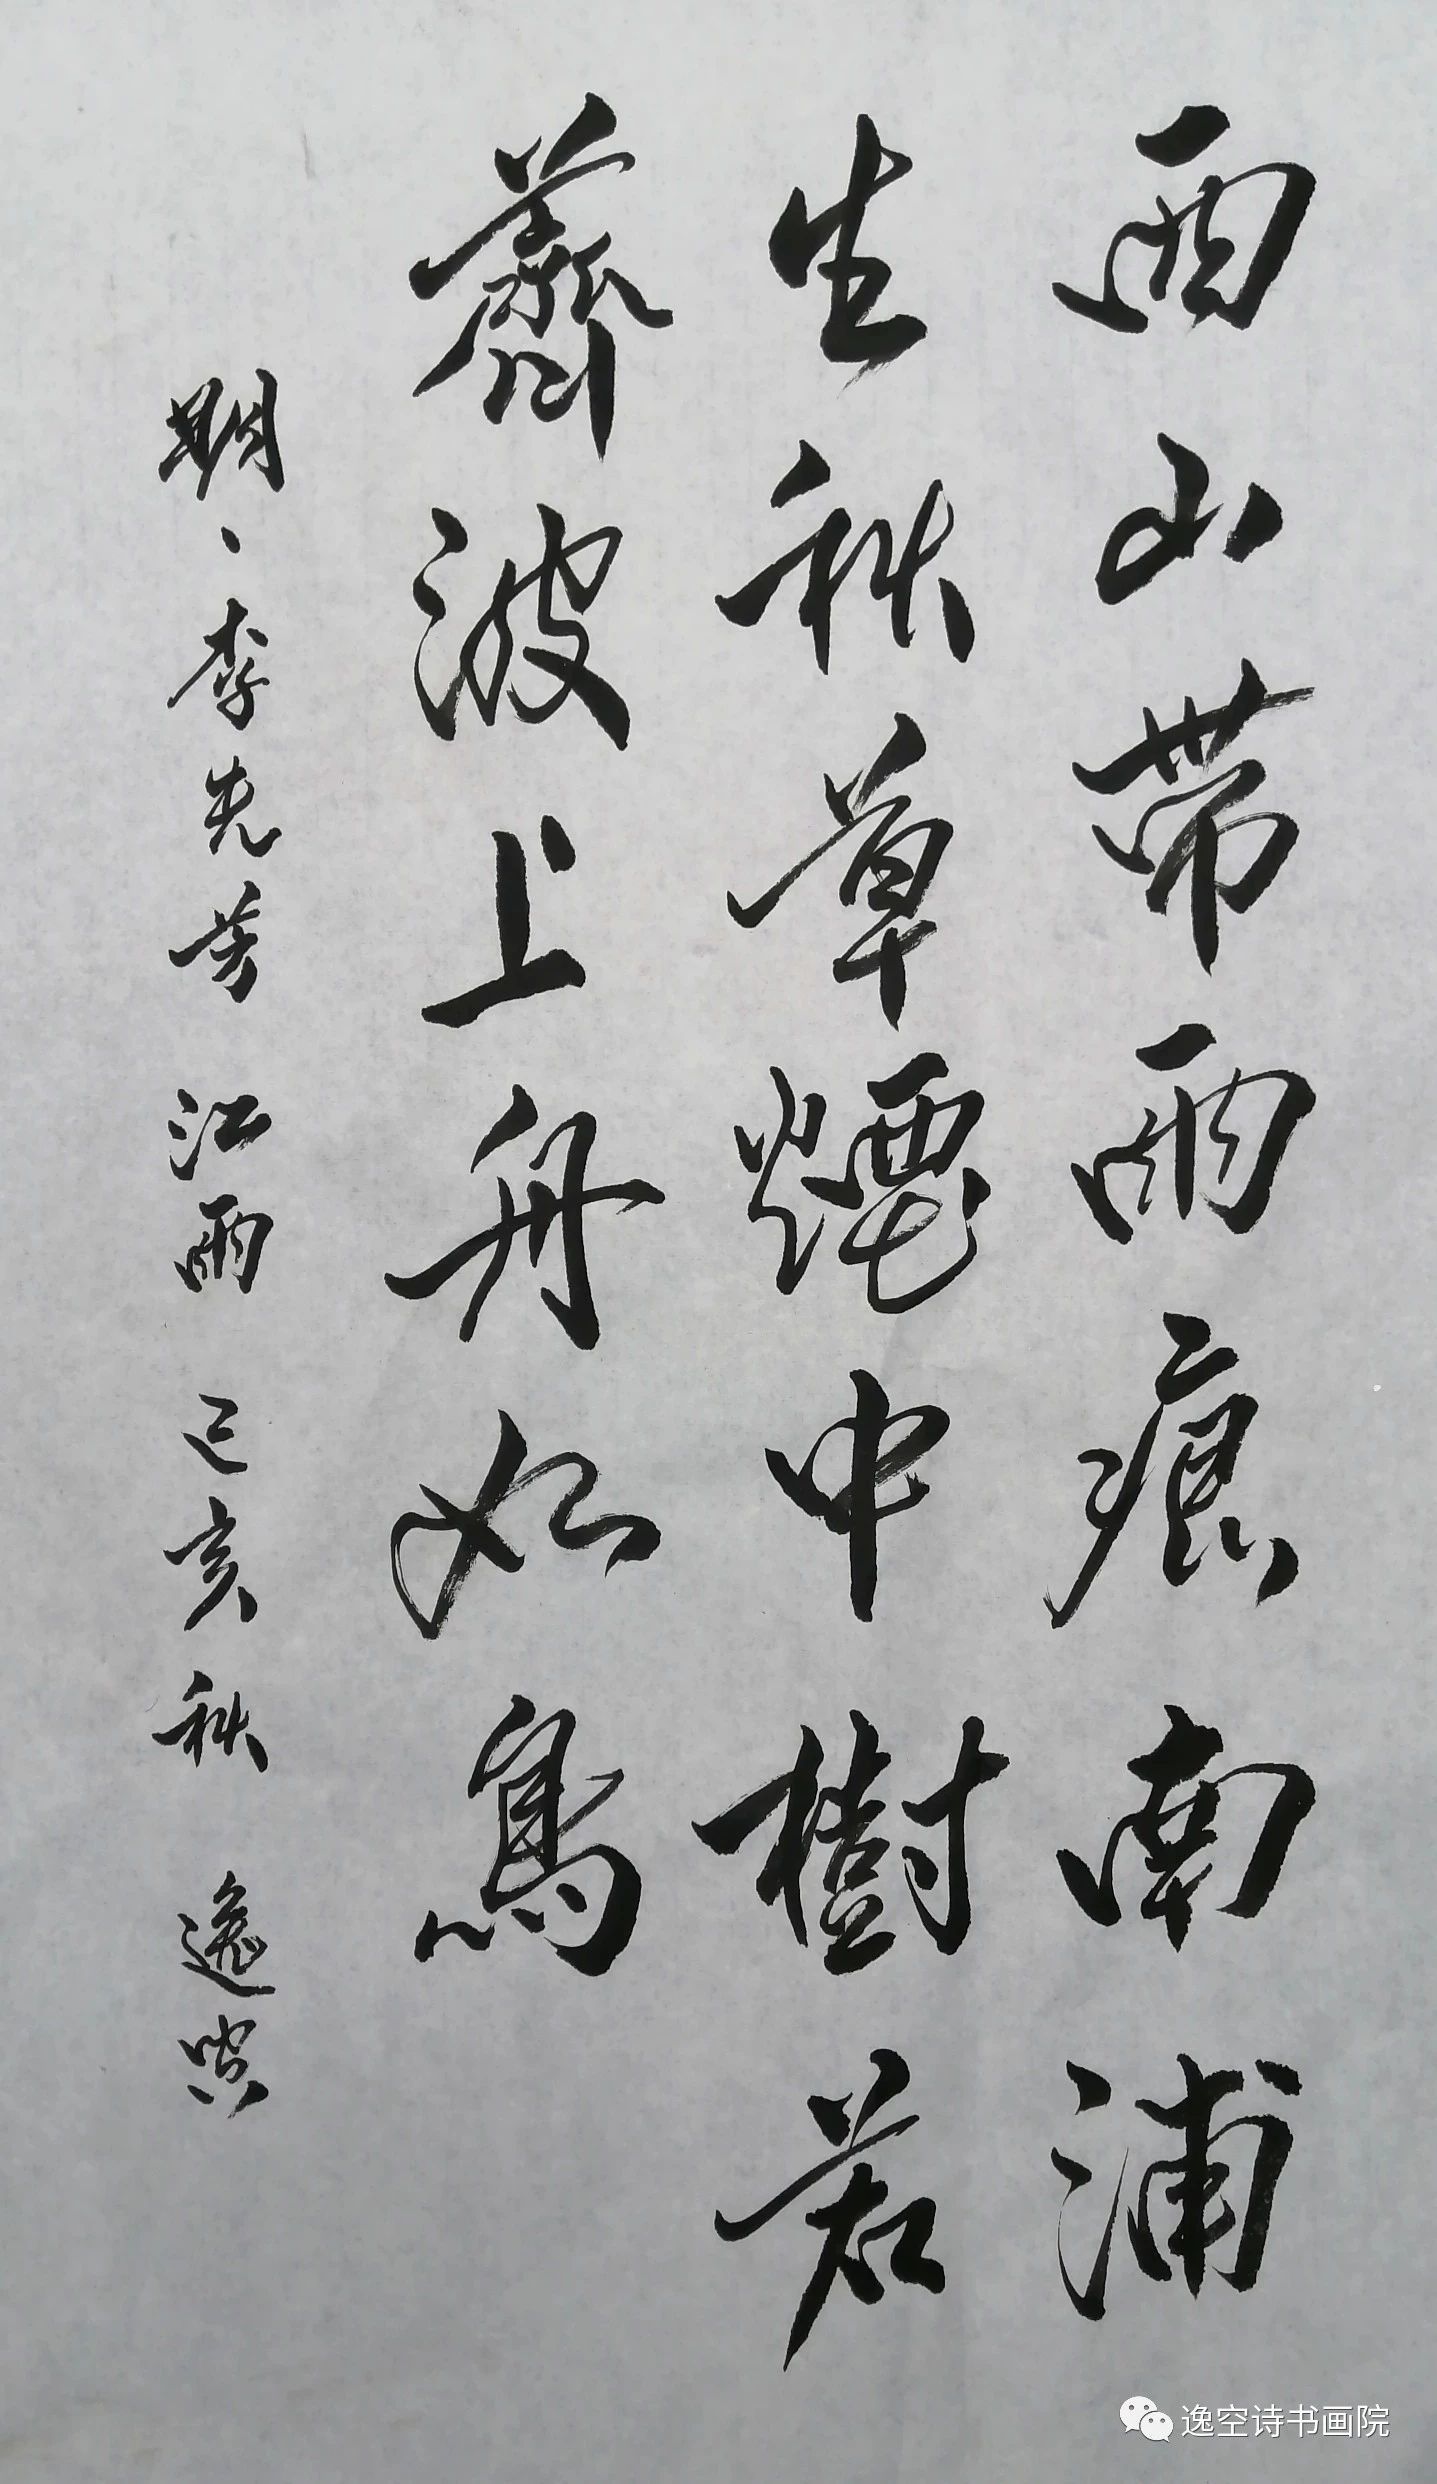 西山帶雨痕南浦
生秋草煙中樹若
薺波上舟如鳥
明、李先芳 江雨 己亥秋 逸空
逸空诗书画院